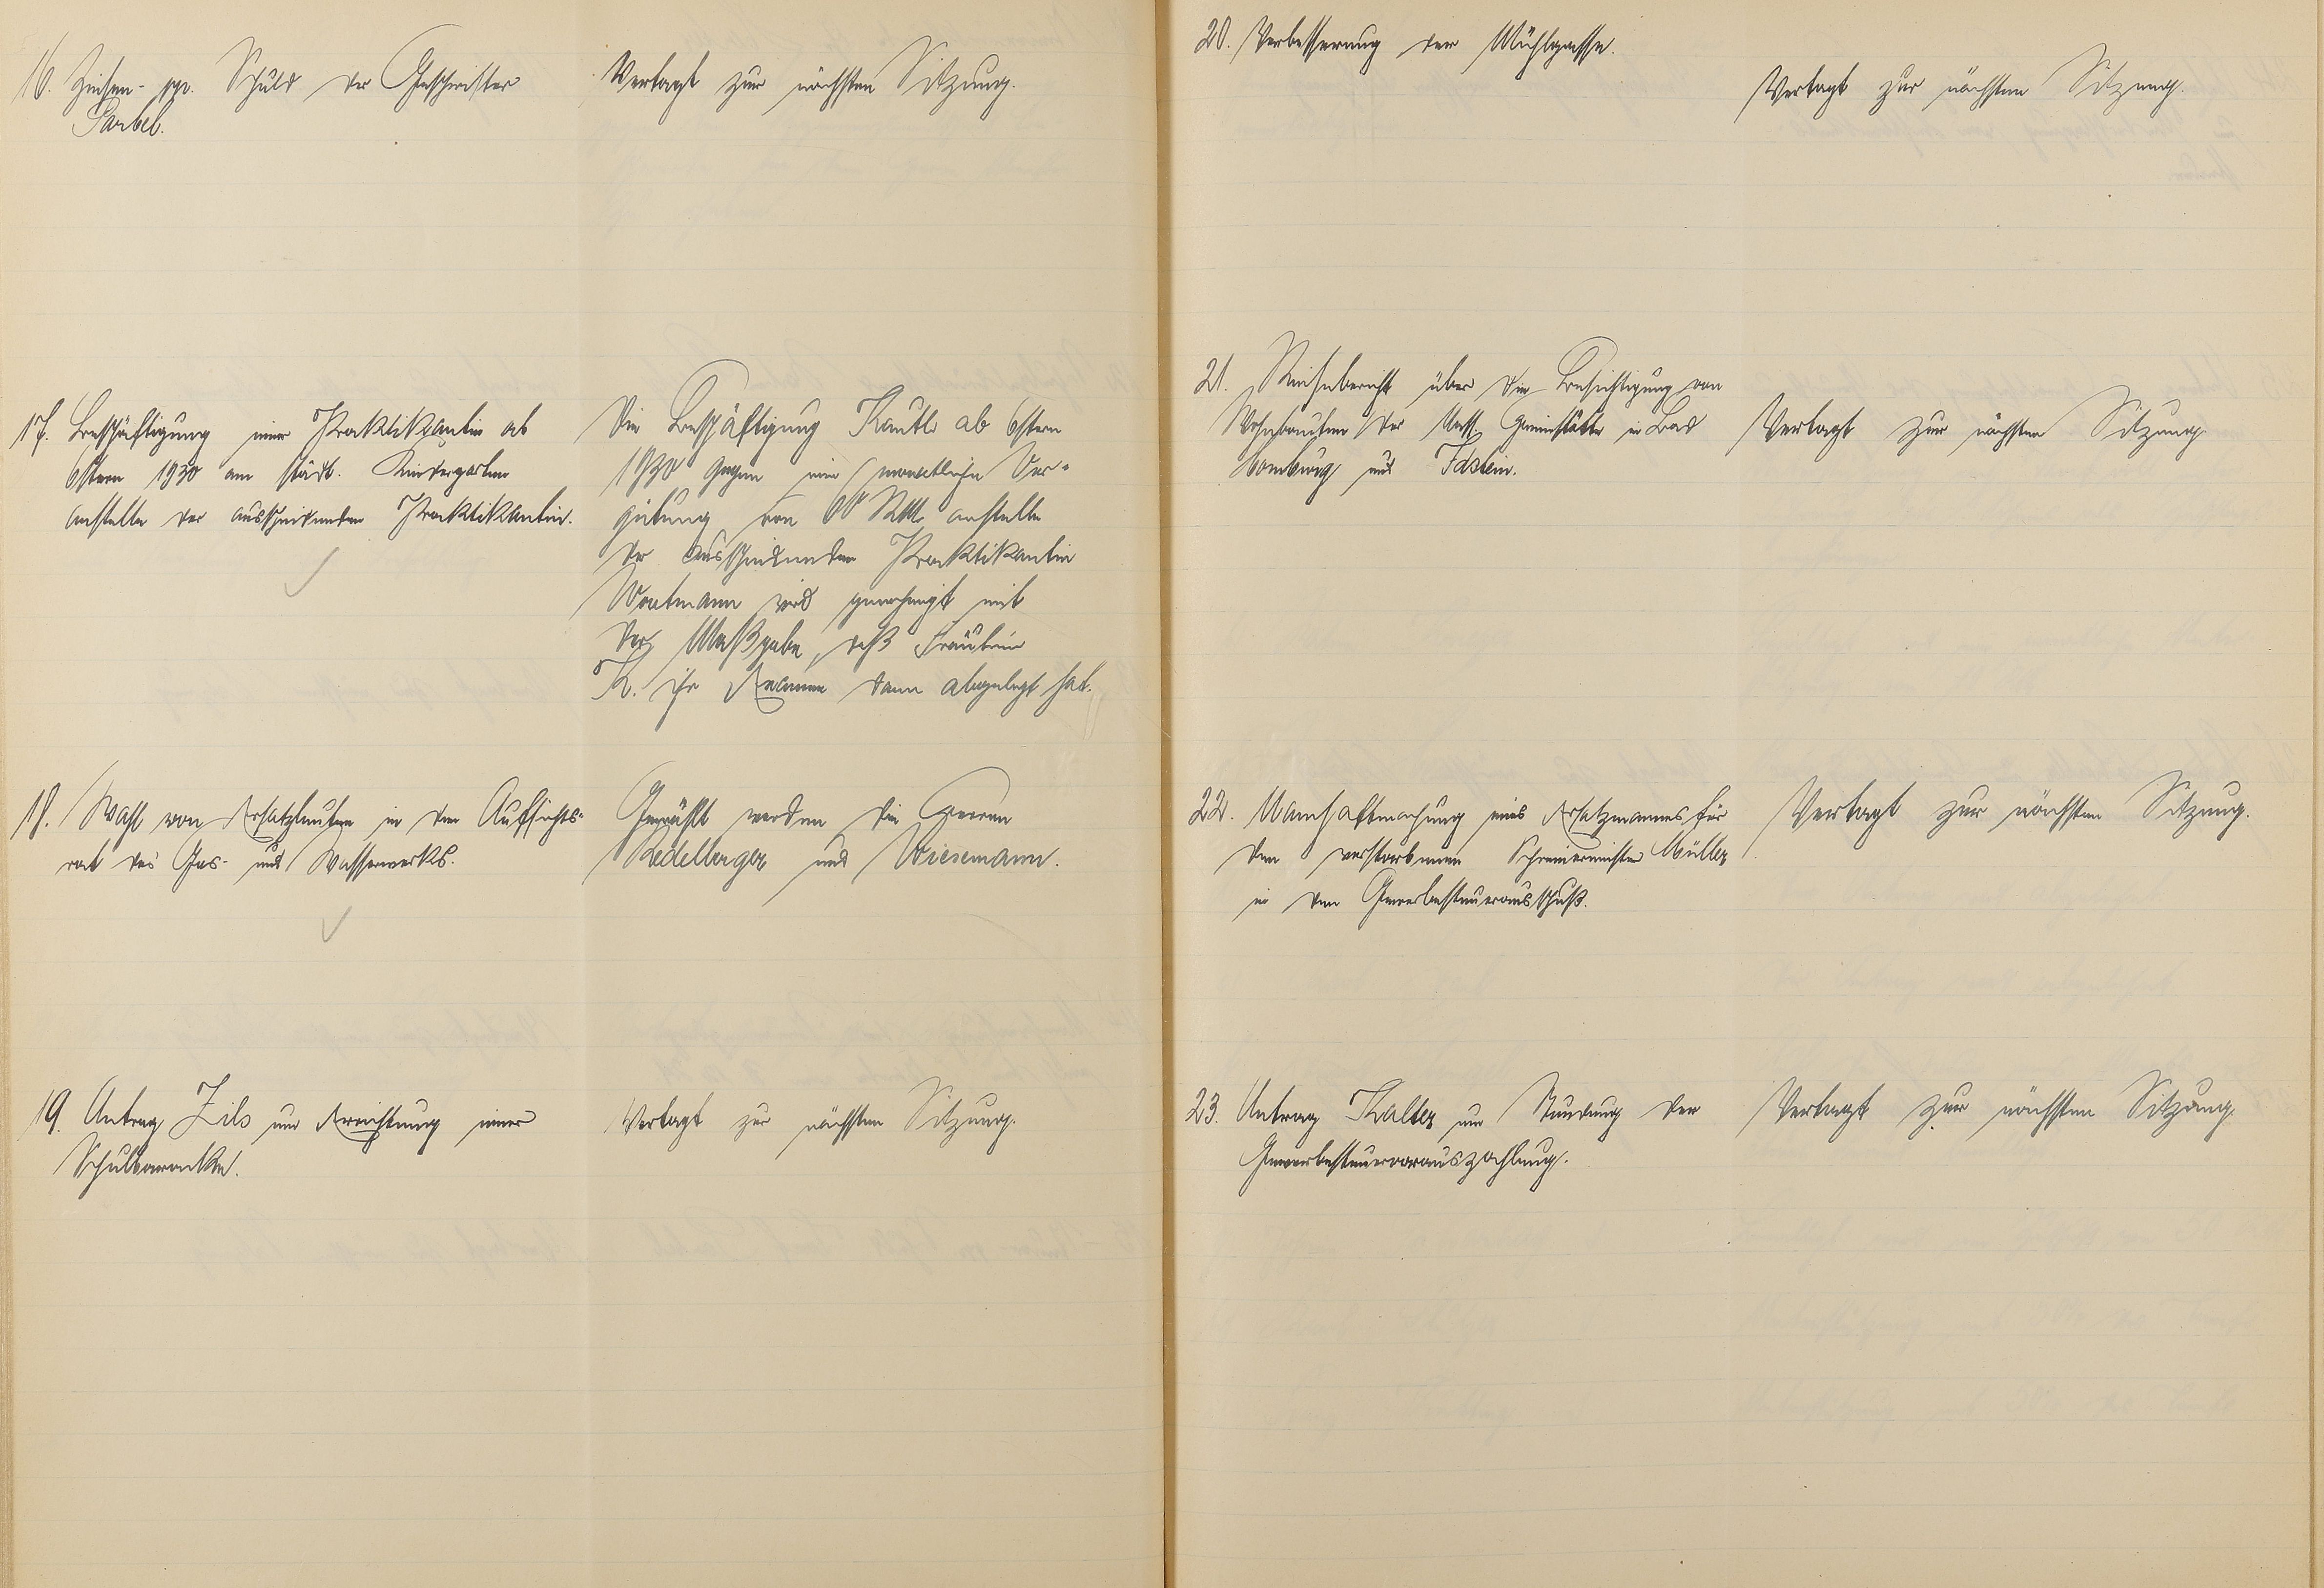 16. Zinsen- pp. Schuld der Geschwister
Sarbel.
Vertagt zur nächsten Sitzung.
17. Beschäftigung einer Praktikantin ab
Ostern 1930 am städt. Kindergarten
anstelle der ausscheidenden Praktikantin.
Die Beschäftigung Kautl ab Ostern
1930 gegen eine monatliche Ver-
gütung von 60 RM anstelle
der ausscheidenden Praktikantin
Wortmann wird genehmigt mit
der Maßgabe, daß Fräulein
K. ihr Examen dann abgelegt hat.
18. Wahl von Ersatzleuten in den Aufsichts-
rat des Gas- und Wasserwerks.
Gewählt werden die Herren
Kedelberger und Wiesemann.
19. Antrag Zils um Errichtung einer
Schulbaracke.
Vertagt zur nächsten Sitzung.
20. Verbesserung der Mühlgasse.
Vertagt zur nächsten Sitzung.
21. Reisebericht über die Besichtigung von
Wohnbauten der Nass. Heimstätte in Bad
Homburg und Idstein.
Vertagt zur nächsten Sitzung.
22. Namhaftmachung eines Ersatzmannes für
den verstorbenen Schreinermeister Müller
in den Gewerbesteuerausschuß.
Vertagt zur nächsten Sitzung.
23. Antrag Kalter um Stundung der
Gewerbesteuervorauszahlung.
Vertagt zur nächsten Sitzung.